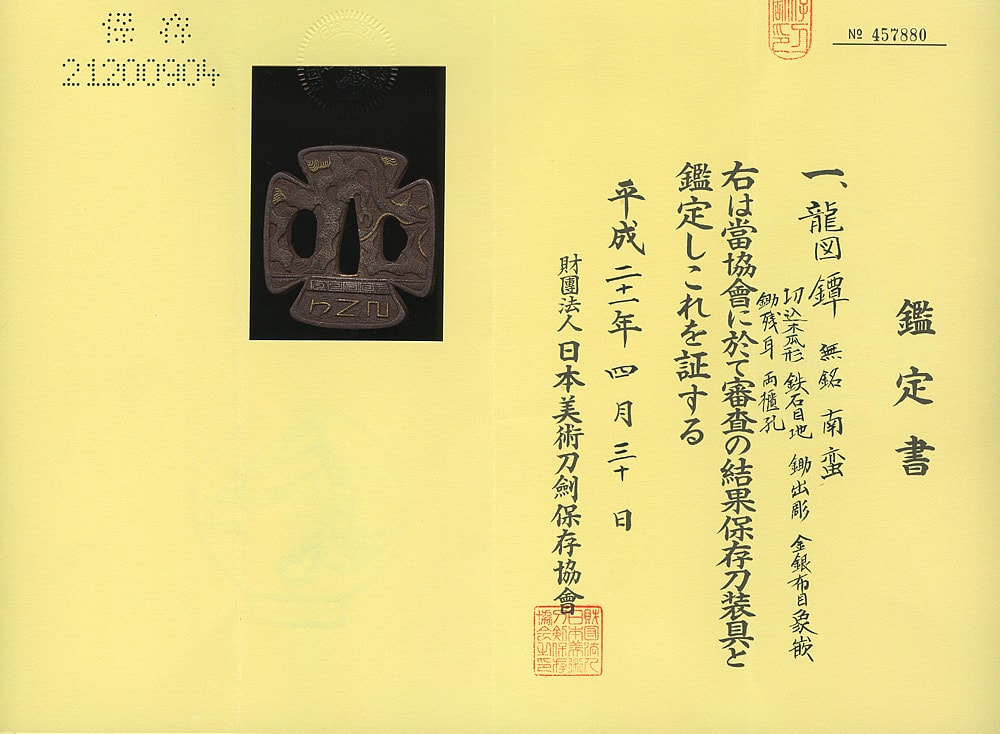 保存
21200904
№ 457880
鑑定書
一、龍図鐔 無銘 南蛮
切込木瓜形 鉄石目地 鋤出彫 金銀布目象嵌
鋤残耳 両櫃孔
右は當協會に於て審査の結果保存刀装具と
鑑定しこれを証する
平成二十一年四月三十日
財團法人日本美術刀劍保存協會